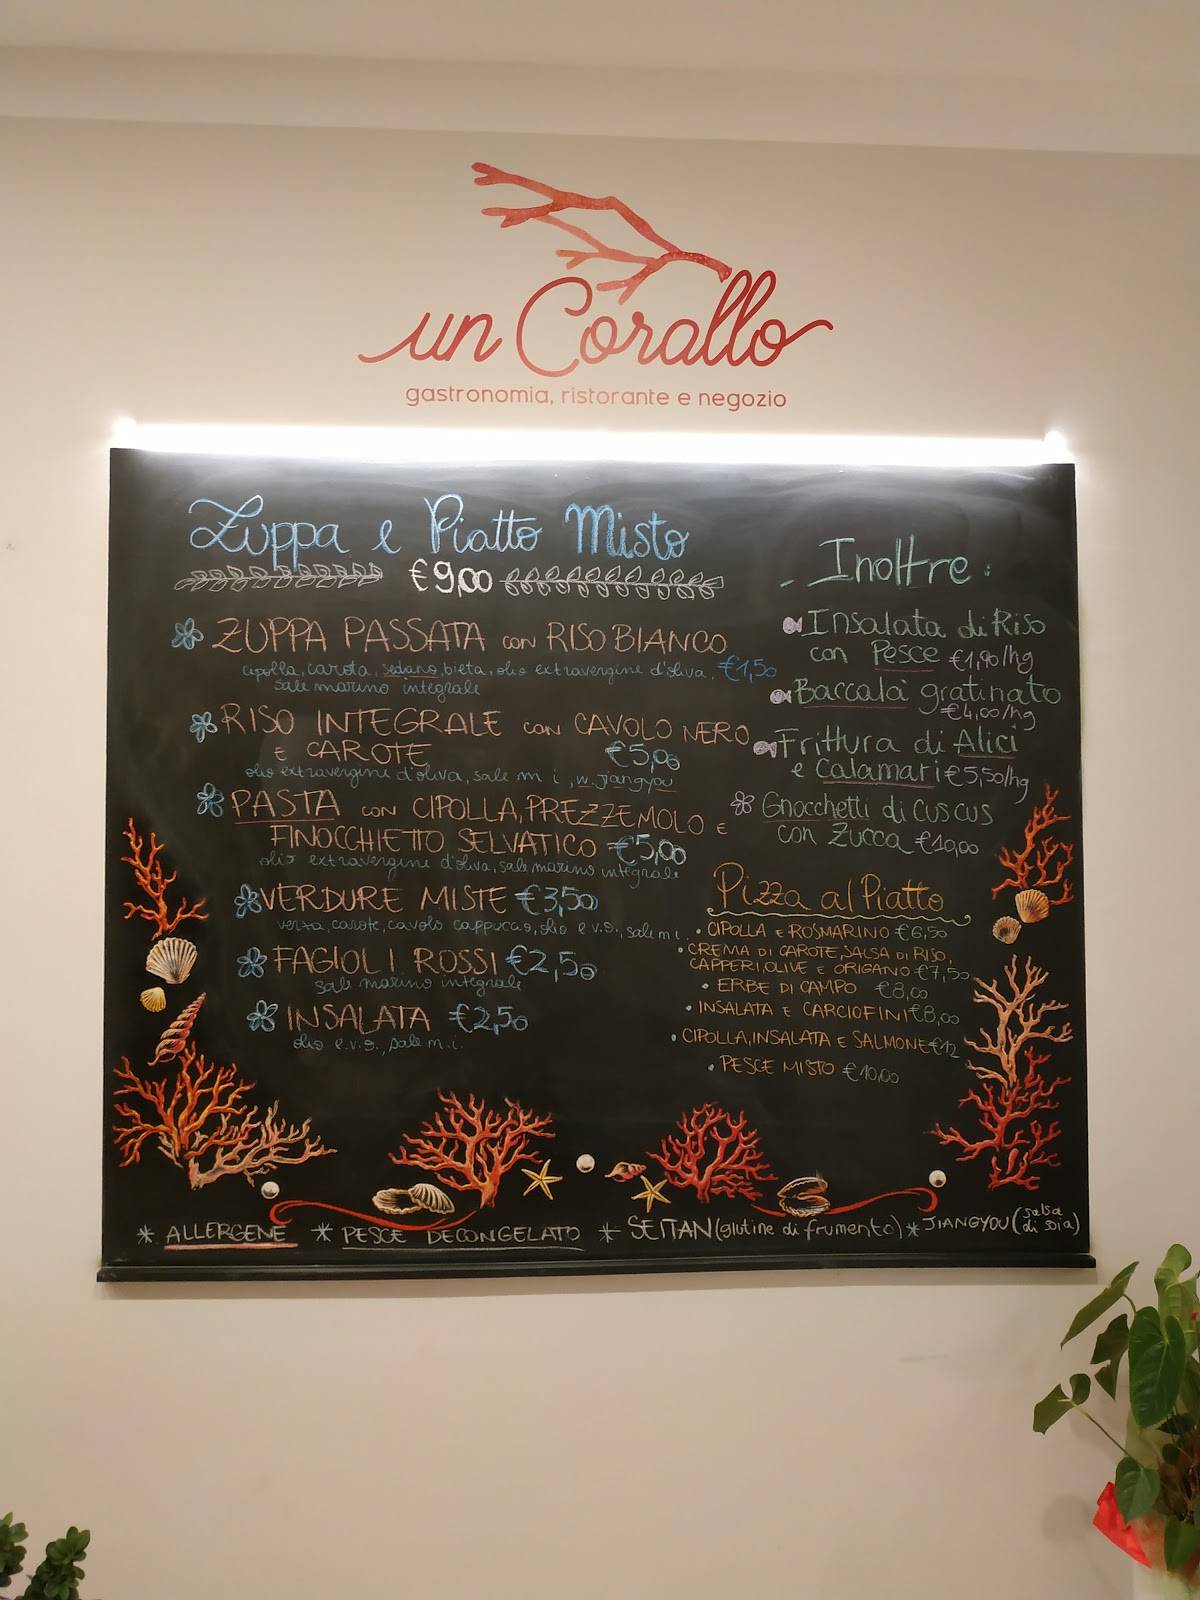 un Corallo
gastronomia, ristorante e negozio
Zuppa e Piatto Misto
€9,00
ZUPPA PASSATA con RISO BIANCO
cipolla, carota, sedano, bieta, olio extravergine d'oliva, €1,50
sale marino integrale
RISO INTEGRALE con CAVOLO NERO
E CAROTE €5,00
olio extravergine d'oliva, sale m i, w. jiangyou
PASTA con CIPOLLA, PREZZEMOLO E
FINOCCHIETTO SELVATICO €5,00
olio extravergine d'oliva, sale marino integrale
VERDURE MISTE €3,50
verza, carote, cavolo cappuccio, olio e.v.o., sale m.i.
FAGIOLI ROSSI €2,50
sale marino integrale
INSALATA €2,50
olio e.v.o., sale m.i.
- Inoltre:
Insalata di Riso
con Pesce €1,90/hg
Baccalà gratinato
€4,00/hg
Frittura di Alici
e Calamari €5,50/hg
Gnocchetti di CUS CUS
con Zucca €10,00
Pizza al Piatto
• CIPOLLA E ROSMARINO €6,50
• CREMA DI CAROTE, SALSA DI RISO,
CAPPERI, OLIVE E ORIGANO €7,50
• ERBE DI CAMPO €8,00
• INSALATA E CARCIOFINI €8,00
• CIPOLLA, INSALATA E SALMONE €12
• PESCE MISTO €10,00
* ALLERGENE * PESCE DECONGELATO * SEITAN (glutine di frumento) * JIANGYOU (salsa di soia)